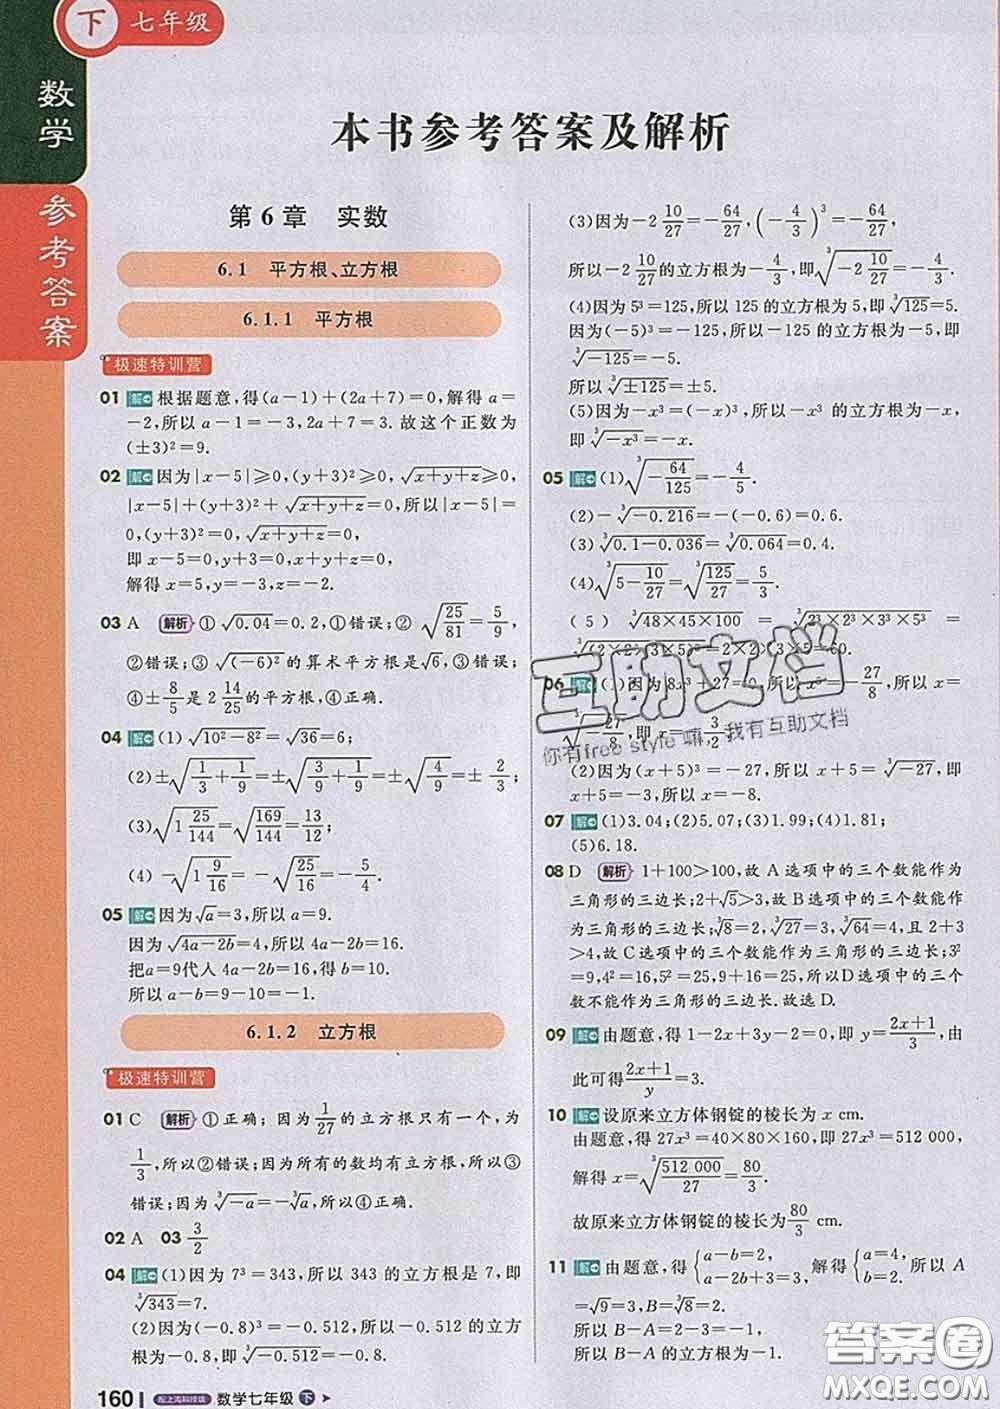 下 七年级
数学
参考答案
本书参考答案及解析
第6章 实数
6.1 平方根、立方根
6.1.1 平方根
极速特训营
01 解 根据题意,得(a-1)+(2a+7)=0,解得a=
-2,所以a-1=-3,2a+7=3.故这个正数为
(±3)²=9.
02 解 因为|x-5|≥0,(y+3)²≥0,√(x+y+z)≥0,
|x-5|+(y+3)²+√(x+y+z)=0,所以|x-5|
=0,(y+3)²=0,√(x+y+z)=0,
即x-5=0,y+3=0,x+y+z=0,
解得x=5,y=-3,z=-2.
03 A 解析 ①√0.04=0.2,①错误;②√(25/81)=5/9,
②错误;③√(-6)²的算术平方根是√6,③错误;
④±8/5是2 14/25的平方根,④正确.
04 解 (1)√(10²-8²)=√36=6;
(2)±√(1/3+1/9)=±√(3/9+1/9)=±√(4/9)=±2/3;
(3)√(1 25/144)=√(169/144)=13/12;
(4)-√(1 9/16)=-√(25/16)=-5/4.
05 解 因为√a=3,所以a=9.
因为√(4a-2b)=4,所以4a-2b=16.
把a=9代入4a-2b=16,得b=10.
所以a-b=9-10=-1.
6.1.2 立方根
极速特训营
01 C 解析 ①正确;因为1/27的立方根只有一个,为
1/3,所以②错误;因为所有的数均有立方根,所以③
错误;因为∛(-a)=-∛a,所以④正确.
02 A 03 3/2
04 解 (1)因为7³=343,所以343的立方根是7,即
∛343=7.
(2)因为(-0.8)³=-0.512,所以-0.512的立方
根是-0.8,即∛(-0.512)=-0.8.
(3)因为-2 10/27=-64/27,(-4/3)³=-64/27,
所以-2 10/27的立方根为-4/3,即∛(-2 10/27)=-4/3.
(4)因为5³=125,所以125的立方根为5,即∛125=5.
因为(-5)³=-125,所以-125的立方根为-5,即
∛(-125)=-5.
所以∛(±125)=±5.
(5)因为-x³=(-x)³,所以-x³的立方根为-x,
即∛(-x³)=-x.
05 解 (1)∛(-64/125)=-4/5.
(2)-∛(-0.216)=-(-0.6)=0.6.
(3)∛(0.1-0.036)=∛0.064=0.4.
(4)∛(5-10/27)=∛(125/27)=5/3.
(5) ∛(48×45×100) = ∛(2³×2³×3³×5³)
=∛(2×2×3×5)³=2×2×3×5=60.
06 解 (1)因为8x³+27=0,所以x³=-27/8,所以x=
∛(-27/8),即x=-3/2.
(2)因为(x+5)³=-27,所以x+5=∛(-27),即
x+5=-3,所以x=-8.
07 解 (1)3.04;(2)5.07;(3)1.99;(4)1.81;
(5)6.18.
08 D 解析 1+100>100,故A选项中的三个数能作为
三角形的三边长;2+√5>3,故B选项中的三个数能作
为三角形的三边长;∛8=2,∛27=3,∛64=4,且2+3
>4,故C选项中的三个数能作为三角形的三边长;3²
=9,4²=16,5²=25,9+16=25,所以D选项中的三个
数不能作为三角形的三边长.故选D.
09 解 由题意,得1-2x+3y-2=0,即y=(2x+1)/3,由
此可得(2x+1)/y=3.
10 解 设原来立方体钢锭的棱长为x cm.
由题意,得27x³=40×80×160,即27x³=512 000,
解得x=∛(512 000/27)=80/3.
故原来立方体钢锭的棱长为80/3 cm.
11 解 由题意,得{a-b=2, a-2b+3=3, 解得{a=4, b=2. 所以A
=√9=3,B=∛8=2.
所以B-A=2-3=-1.
所以∛(B-A)=∛(-1)=-1.
互助文档
你有free style嘛,我有互助文档
答案圈
MXQE.COM
160 配上海科技版 数学七年级 下